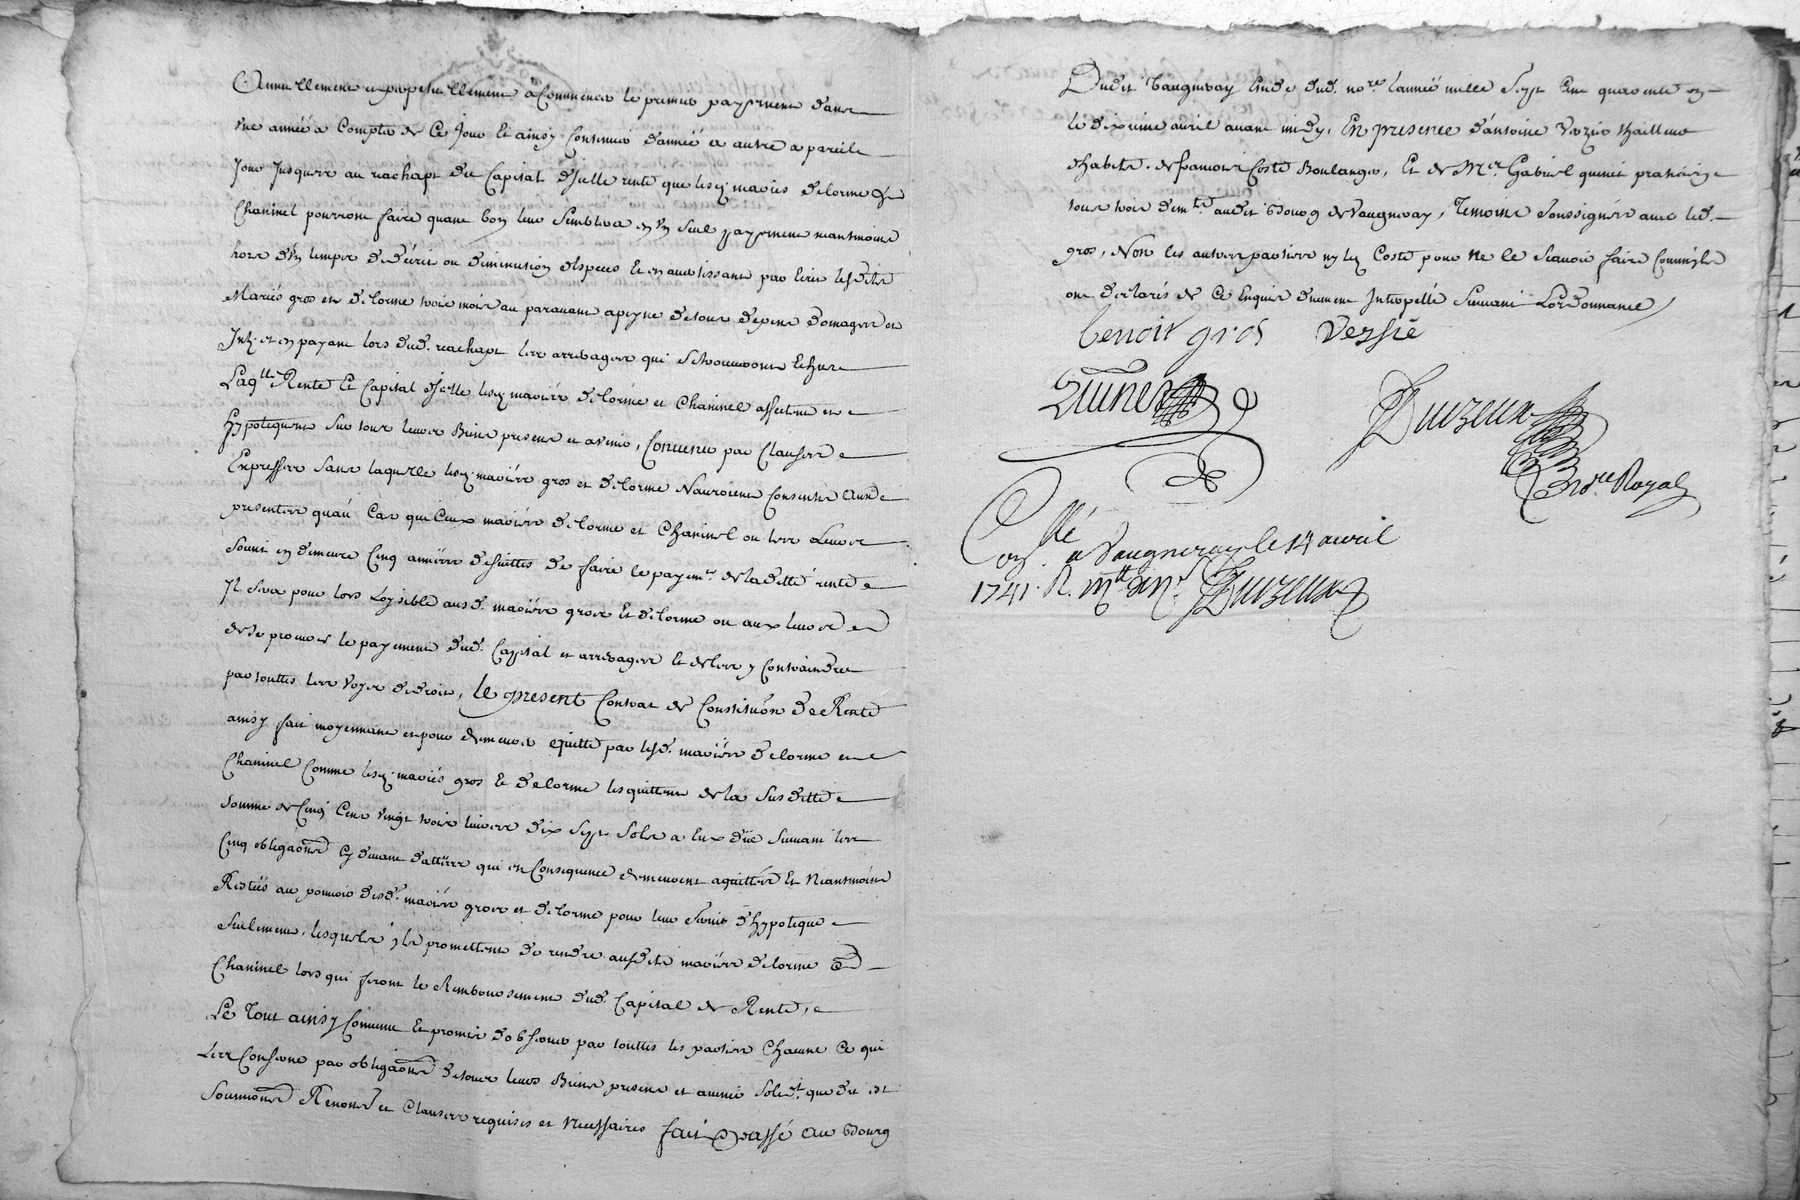 Annuellement et perpetuellement a Commencer le premier payement dans
une année a Compter de Ce Jour Et ainsy Continuer d'année a autre a pareil
Jour Jusques au rachapt du Capital d'jcelle rente que lesd. mariés delorme Et
Chaninel pourront faire quant bon leur Semblera en un Seul payement neantmoins
hors d'un temps de décrit ou diminution d'especes Et en avertissant par Ecrit lesdits
Mariés gros et delorme trois mois au paravant a peyne de tous depens domages et
Jnts. et en payant lors dud. reachapt les arrerages qui Se trouveront Echus
Laqlle Rente Et Capital d'jcelle lesd. mariés delorme et Chaninel affectent et
hypotequent Sur tous leurs Biens presens et avenir, Convenu par Clauses
Expresses Sans laquelle lesd. mariés gros et delorme Nauroient Consenti aux
presentes qu'au Cas que Ceux mariés delorme et Chaninel ou les Leurs
Soient en demeure Cinq années desuittes de faire le payemt. de laditte rente
Jl Sera pour lors Loysible ausd. mariés gros Et delorme ou aux leurs
de Se procurer le payement dud. Capital et arrerages Et de les y Contraindre
par touttes les Voyes de droit, le present Contrat de Constituôn de Rente
ainsy fait moyennant et pour demeurer quitte par lesd. mariés delorme et
Chaninel Comme lesd. mariés gros Et delorme les quittent de la Susditte
Somme de Cinq Cent vingt trois livres dix Sept Sols a Eux düe Suivant les
Cinq obligaôns Cy devant dattées qui en Consequence demeurent aquittées Et Neantmoins
Restées au pouvoir desd. mariés gros et delorme pour leur Servir d'hypoteque
Seulement, lesquels jls promettent de rendre ausdits mariés delorme Et
Chaninel lors qui feront le Remboursement dud. Capital de Rente,
Le Tout ainsy Convenu Et promis d'observer par touttes les parties Chacune Ce qui
Les Conserne par obligaôns de tous leurs Biens presens et avenir Solidt. que dit est
Soumiôns Renonsôns et Clauses requises et Necessaires fait et passé au Bourg
Dudit Vaugneray Etude dud. nore. l'année mille Sept Cent quarente un
le dixieme avril avant midy, En presence d'antoine Vezié tailleur
d'habits. de françois Coste Boulanger, Et de Mre. Gabriel quinet praticien
tous trois demts. audit Bourg de Vaugneray, Temoins Soussignés avec led.
gros, Non les autres parties ny led. Coste pour ne le Scavoir faire Comm'jls
ont declarés de Ce Enquis duement Jnterpellé Suivant L'ordonnance
benoit gros Vessié
Quinet
Duizeux
Nore. Royal
Conllé a Vaugneray le 14 avril
1741. R. Duizeux